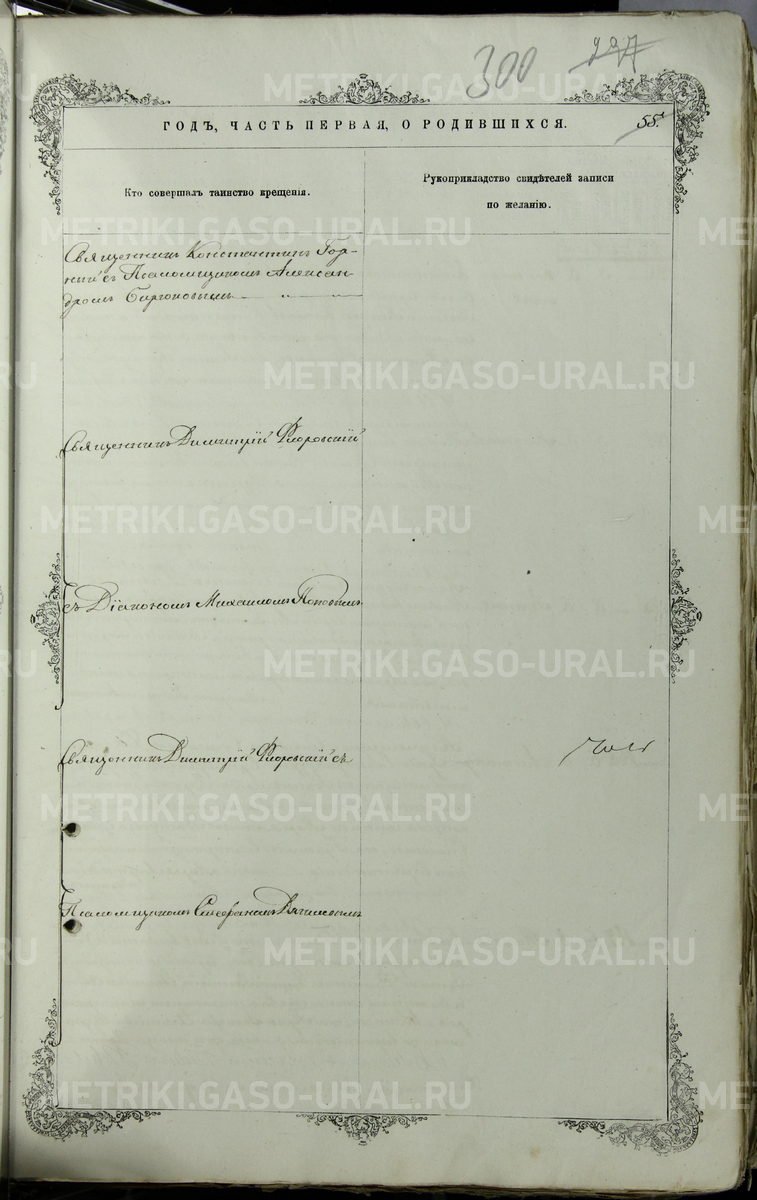 300
297
ГОДЪ, ЧАСТЬ ПЕРВАЯ, О РОДИВШИХСЯ.
55.
Кто совершалъ таинство крещенія.
Рукоприкладство свидѣтелей записи
по желанію.
Священникъ Константинъ Гор-
ній съ Псаломщикомъ Алексан-
дромъ
Священникъ Димитрій Флоровскій
съ Діакономъ Михаиломъ Поповымъ
Священникъ Димитрій Флоровскій съ
Псаломщикомъ Стефаномъ
METRIKI.GASO-URAL.RU